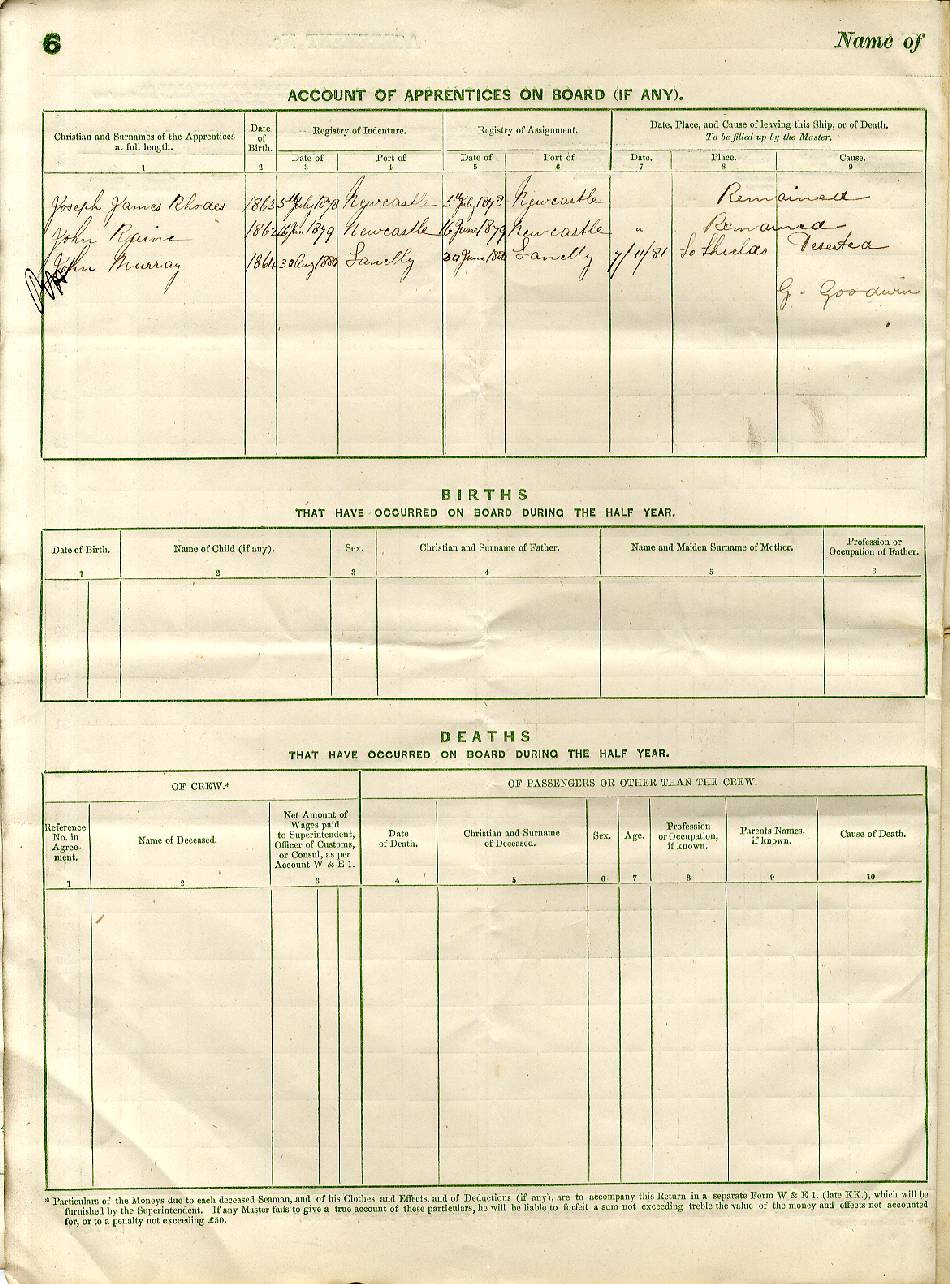 6
Name of
ACCOUNT OF APPRENTICES ON BOARD (IF ANY).
Christian and Surnames of the Apprentices at full length.
Date of Birth.
Registry of Indenture.
Registry of Assignment.
Date, Place, and Cause of leaving this Ship, or of Death.
To be filled up by the Master.
Date of
Port of
Date of
Port of
Date.
Place.
Cause.
1 2 3 4 5 6 7 8 9
Joseph James Rhodes 1863 5th July 1878 Newcastle 5th July Newcastle Remained
John Raine 1862 1879 Newcastle 16 June 1879 Newcastle " Remained
John Murray 1864 Aug 1880 Llanelly Llanelly 7/11/81 So Shields Deserted
G. Goodwin
BIRTHS
THAT HAVE OCCURRED ON BOARD DURING THE HALF YEAR.
Date of Birth.
Name of Child (if any).
Sex.
Christian and Surname of Father.
Name and Maiden Surname of Mother.
Profession or Occupation of Father.
1 2 3 4 5 6
DEATHS
THAT HAVE OCCURRED ON BOARD DURING THE HALF YEAR.
OF CREW.*
OF PASSENGERS OR OTHER THAN THE CREW
Reference No. in Agreement.
Name of Deceased.
Net Amount of Wages paid to Superintendent, Officer of Customs, or Consul, as per Account W & E 1.
Date of Death.
Christian and Surname of Deceased.
Sex.
Age.
Profession or Occupation, if known.
Parents Names, if known.
Cause of Death.
1 2 3 4 5 6 7 8 9 10
* Particulars of the Moneys due to each deceased Seaman, and of his Clothes and Effects, and of Deductions (if any), are to accompany this Return in a separate Form W & E 1. (late KK.), which will be
furnished by the Superintendent. If any Master fails to give a true account of these particulars, he will be liable to forfeit a sum not exceeding treble the value of the money and effects not accounted
for, or to a penalty not exceeding £50.